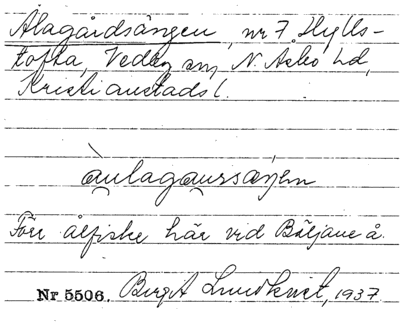 Ålagårdsängen, nr 7 Hylls-
tofta, Vedby sn, N. Åsbo hd,
Kristianstads l.
àulagaurssæŋen
Förr ålfiske här vid Bäljane å.
Nr 5506. Birgit Lundkvist, 1937